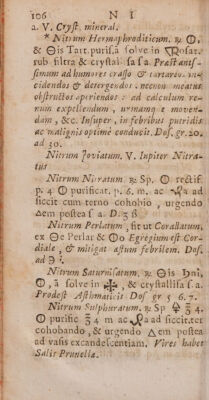 106 N I
a. V. Cryst. mineral.
* Nitrum Hermaphroditicum. ℞ 🜕,
& 🜔is Tart. purif. ā solve in Rosar.
sub filtra & crystal sa f a. Præstantis-
simum ad humores crasso & tartareo. in-
cidendos & detergendos. necnon meatus
obstructos aperiendos: ad calculum re-
num expellendum, urinamq; movem-
dam, &c. Insuper, in febribus putridis
ac malignis optimè conducit. Dos. gr. 20.
ad 30.
Nitrum Joviatum. V. Jupiter Nitra-
tus
Nitrum Nitratum. ℞ Sp. 🜕 rectif.
p. 4 🜕 purificat. p. 6. m. ac ad
siccit cum terno cohobio, urgendo
🜂em postea f a. D. ʒ ß
Nitrum Perlatum, fit ut Corallatum,
ex 🜔e Perlar & 🜕o Egregium est Cor-
diale, & mitigat æstum febrilem. Dos.
ad ℈ i.
Nitrum Saturnisatum. ℞ 🜔is ♄ni,
🜕, ā solve in & crystallisa f a.
Prodest Asthmaticis Dos gr 5 6. 7.
Nitrum Sulphuratum. ℞ Sp 🜍 ℥ 4.
🜕 purific ℥ 4 m ac ad siccit. ter
cohobando, & urgendo 🜂em postea
ad vasis excandescentiam. Vires habet
Salis Prunellæ.